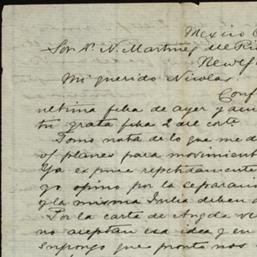 Mexico
Sor. Dn. N. Martinez del Rio
New
Mi querido Nicolas
Conf
ultima fcha de ayer y
tu grata fcha 2 del corte
Tomo nota de lo que me d
of planes para movimient
Ya espuse repetidamente
yo opino por la separacio
y la misma Julia deben
Por la carta de Angela ve
no aceptan esa idea y en
supongo que pronto nos